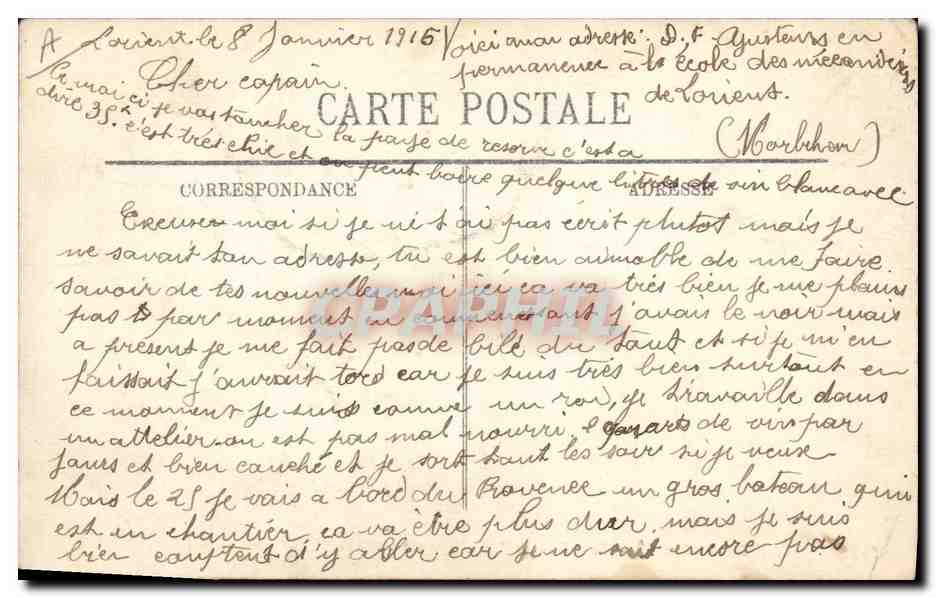 A Lorient le 8 Janvier 1916
Cher copain.
Voici mon adresse: D. F Ajusteurs en
permanence à la école des mécaniciens
de Lorient.
(Morbihan)
CARTE POSTALE
Ce moi ci je vas toucher la paye de resour c'est a
dire 35f. c'est trés chic et on peut boire quelque litres de vin blanc avec
CORRESPONDANCE
ADRESSE
Excuse moi si je ne t ai pas écrit plutot mais je
ne savait ton adresse, tu est bien aimable de me faire
savoir de tes nouvelles moi ici ça va trés bien je me plains
pas par moment en commencssant j'avais le noir mais
a présent je me fait pas de bile du tout et si je m'en
faissait j'aurait tord car je suis très bien surtout en
ce moment je suis comme un roi, je travaille dans
un attelier on est pas mal nourri 2 quarts de vin par
jours et bien couché et je sort tout les soir si je veux
Mais le 25 je vais a bord du Provence un gros bateau qui
est en chantier ça va être plus dur mais je suis
bien comptent d'y aller car je ne sait encore pas
CPAPHIL